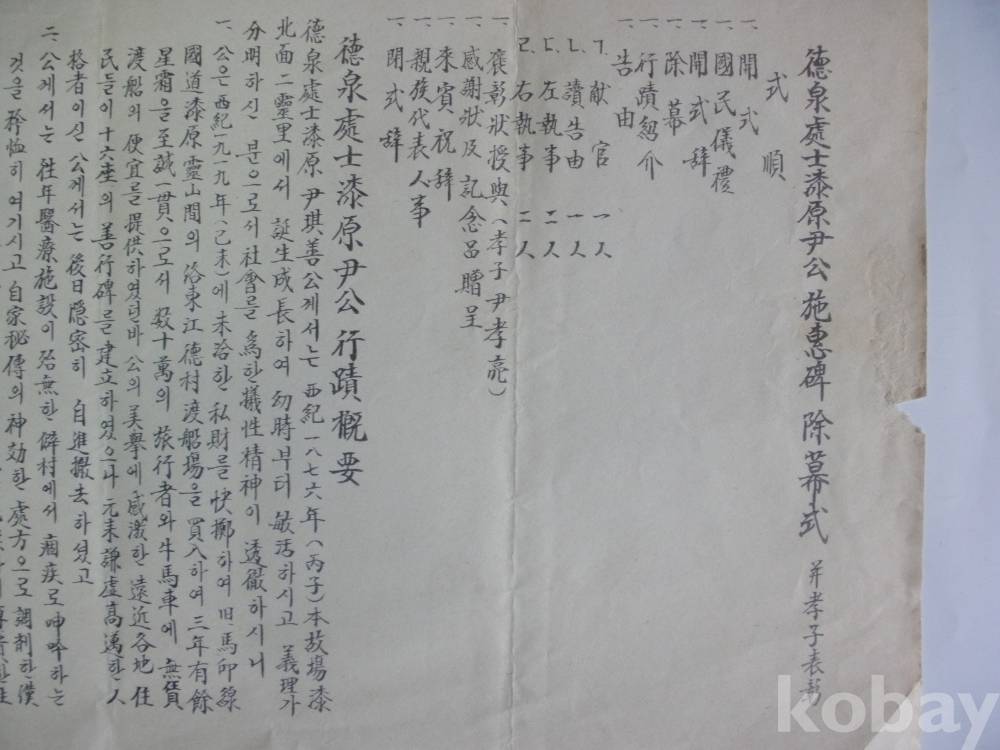 德泉處士漆原尹公 施惠碑 除幕式 并孝子表彰
式順
一、開式
一、國民儀禮
一、開式辞
一、除幕
一、行蹟紹介
一、告由
ㄱ. 献官 一人
ㄴ. 讀告由 一人
ㄷ. 左執事 二人
ㄹ. 右執事 二人
一、褒彰狀授與(孝子尹孝亮)
一、感謝狀及 記念品贈呈
一、來賓祝辞
一、親族代表人事
一、閉式辞
德泉處士漆原尹公 行蹟概要
德泉處士漆原 尹琪善公게서는 西紀一八七六年(丙子)本故場漆
北面二靈里에서 誕生成長하여 幼時부터 敏活하시고 義理가
分明하신 분으로서社會를 爲한犧牲精神이 透徹하시니
一、公은西紀一九一九年(己未)에 未洽한 私財를 快擲하여 旧馬印線
國道漆原靈山間의 洛東江德村渡船場을 買入하여 三年有餘
星霜을至誠一貫으로서 数十萬의 旅行者와 牛馬車에 無賃
渡船의 便宜를 提供하였던바 公의美擧에感激한 遠近各地住
民들이十六座의 善行碑를建立하였으나 元来謙虛高邁한 人
格者이신 公게서는 後日隠密히 自進撤去하셨고
二、公게서는 往年醫療施設이殆無한 僻村에서 痼疾로呻吟하는
것을 矜恤히 여기시고 自家秘傳의 神効한 處方으로 調剤한漢